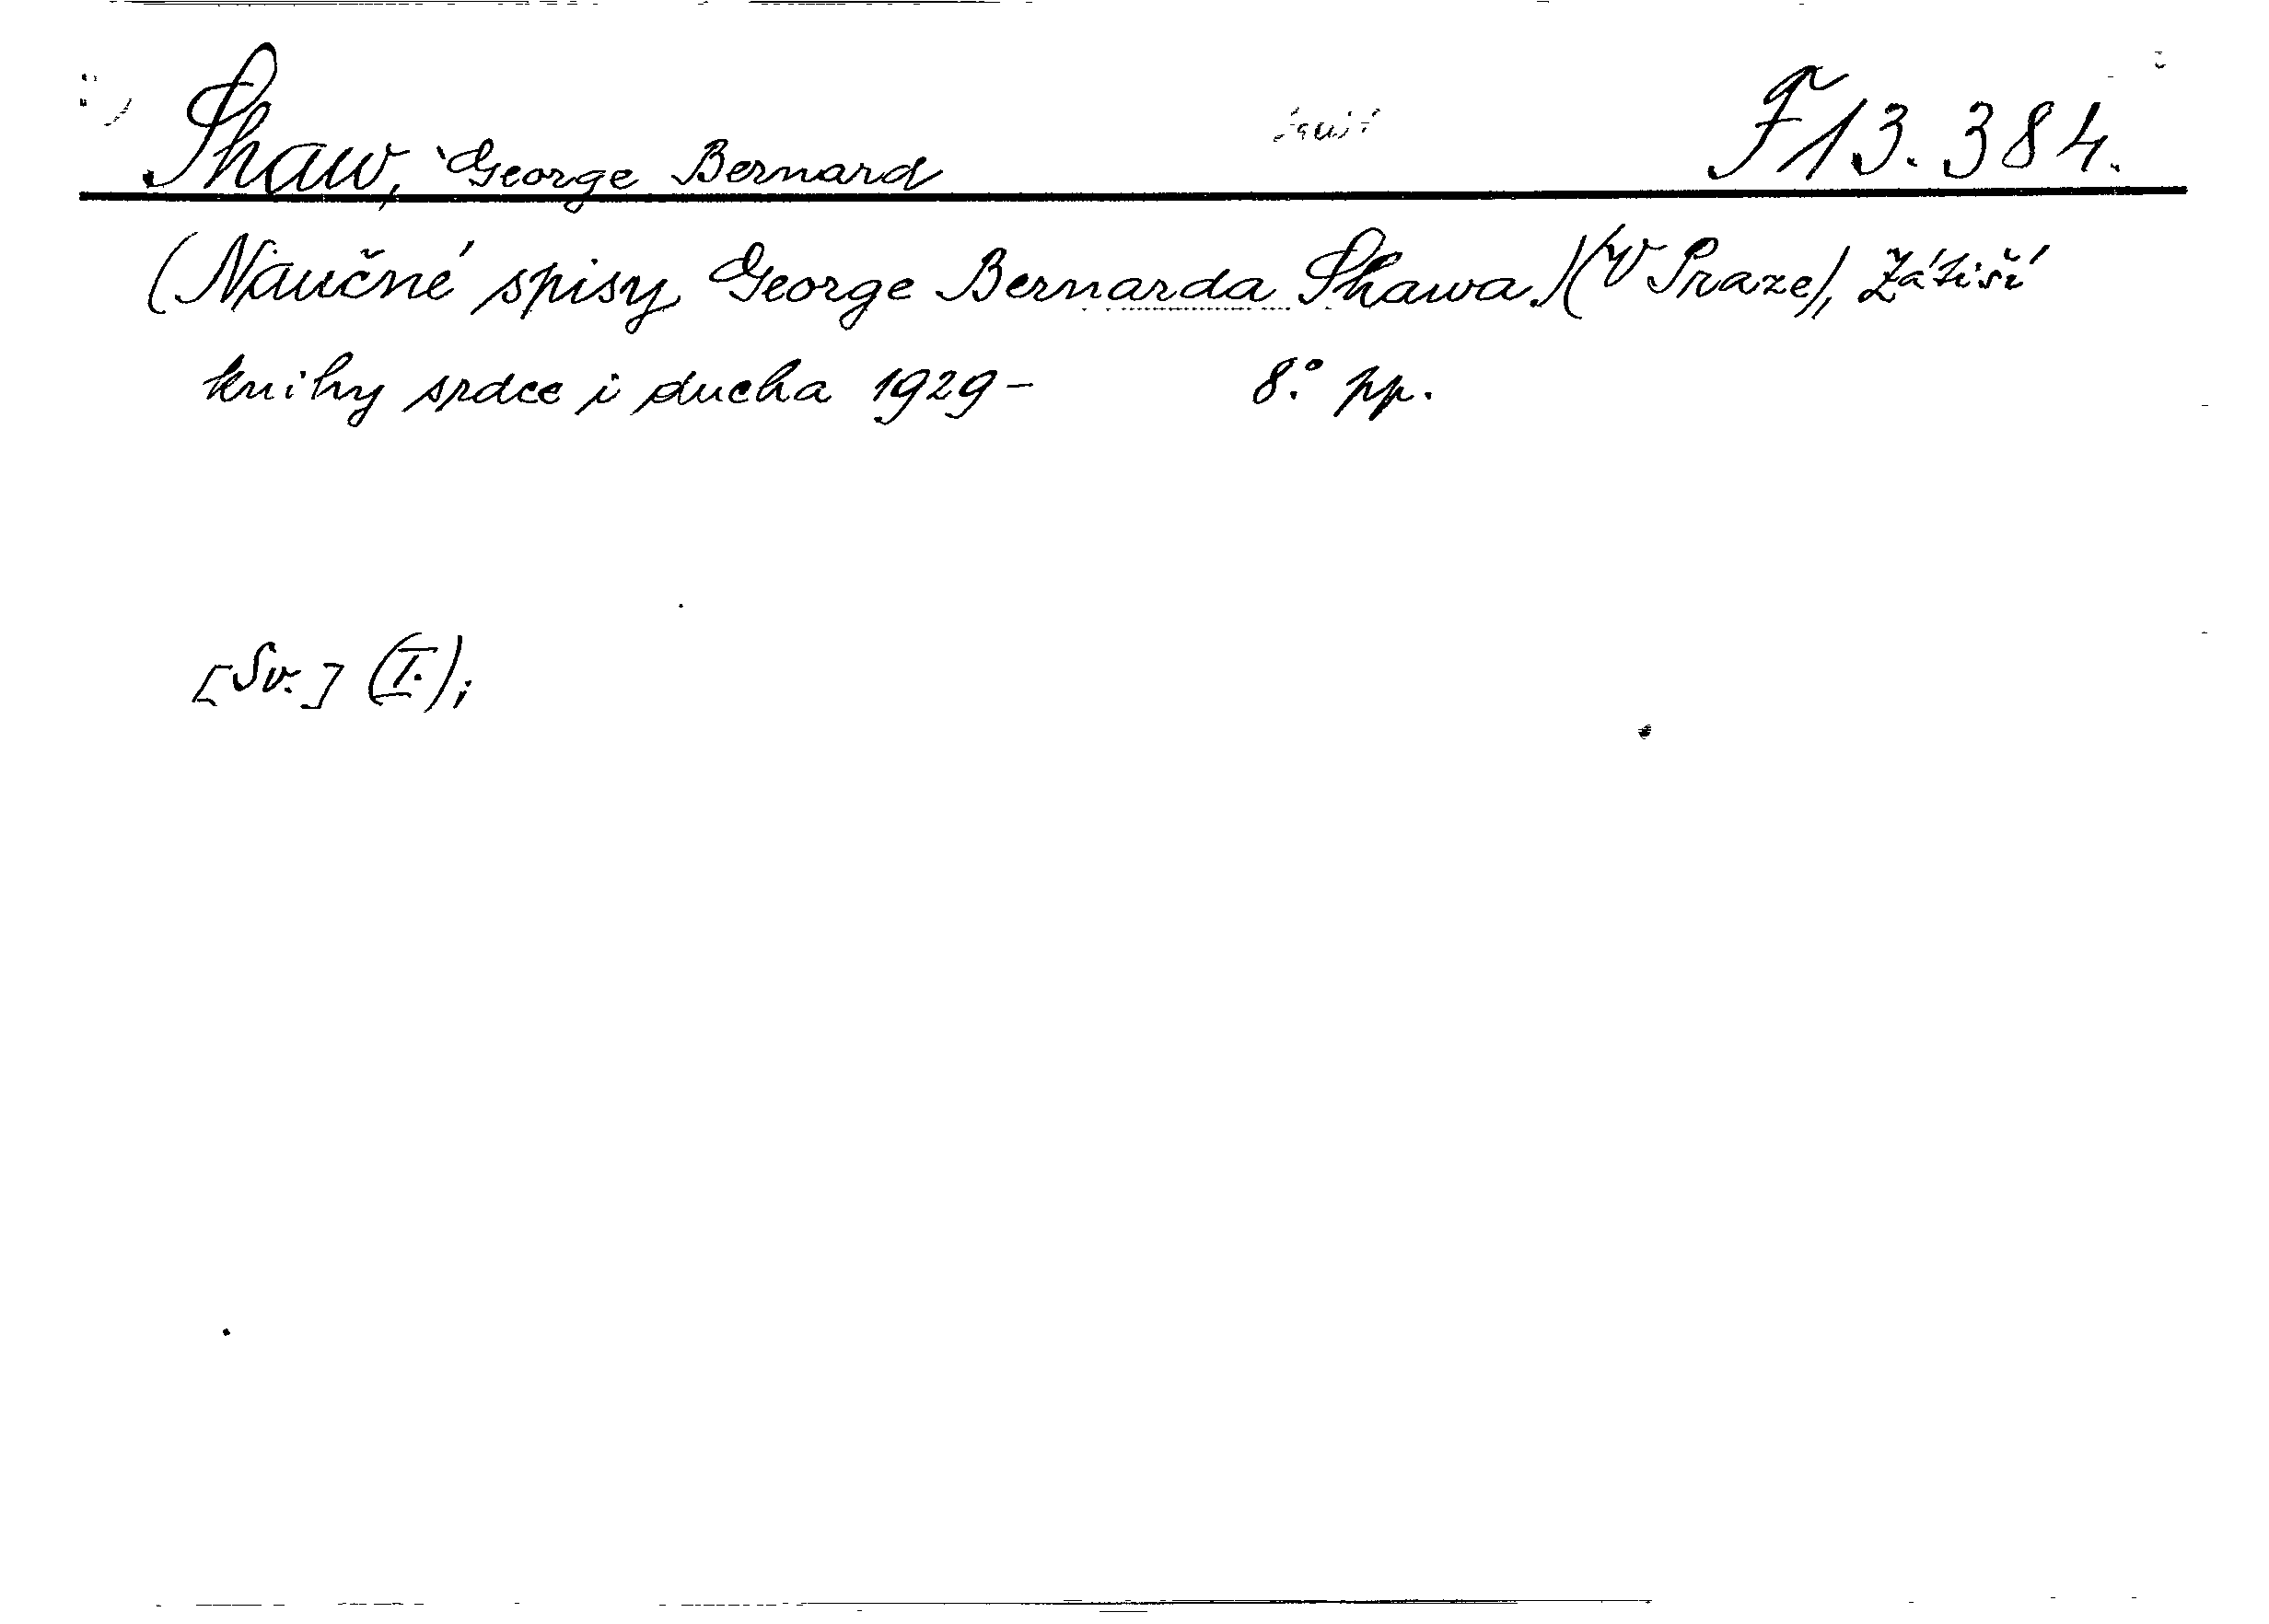 Shaw, George Bernard F 13.384.
(Naučné spisy George Bernarda Shawa.)(V Praze), Zátiší
knihy srdce i ducha 1929- 8.° pp.
[Sv.] (I.);